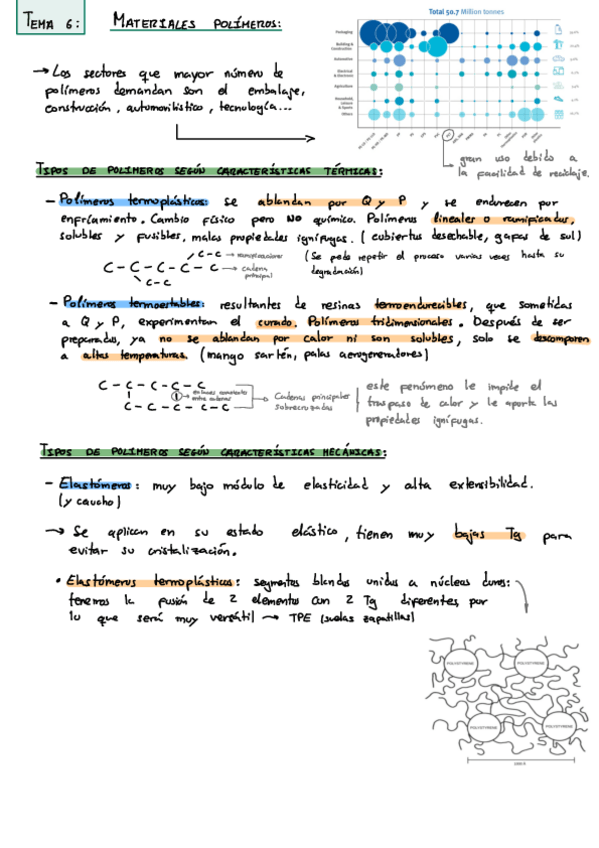 TEMA 6: MATERIALES POLÍMEROS:
Total 50.7 Million tonnes
Packaging
Building & Construction
Automotive
Electrical & Electronic
Agriculture
Household, Leisure & Sports
Others
→ Los sectores que mayor número de
polímeros demandan son el embalaje,
construcción, automovilístico, tecnología...
gran uso debido a
la facilidad de reciclaje.
TIPOS DE POLIMEROS SEGÚN CARACTERÍSTICAS TÉRMICAS:
- Polímeros termoplásticos: se ablandan por Q y P y se endurecen por
enfriamiento. Cambio físico pero NO químico. Polímeros lineales o ramificados,
solubles y fusibles, malas propiedades ignífugas. (cubiertos desechable, gafas de sol)
C-C → ramificaciones
C-C-C-C-C → cadena principal
C-C
(Se puede repetir el proceso varias veces hasta su
degradación)
- Polímeros termoestables: resultantes de resinas termoendurecibles, que sometidas
a Q y P, experimentan el curado. Polímeros tridimensionales. Después de ser
preparados, ya no se ablandan por calor ni son solubles, solo se descomponen
a altas temperaturas. (mango sartén, palas aerogeneradores)
C-C-C-C-C
enlaces
entre cadenas
C-C-C-C-C
Cadenas principales
sobrecruzadas
este fenómeno le impide el
traspaso de calor y le aporta las
propiedades ignífugas.
TIPOS DE POLIMEROS SEGÚN CARACTERÍSTICAS MECÁNICAS:
- Elastómeros: muy bajo módulo de elasticidad y alta extensibilidad.
(y caucho)
→ Se aplican en su estado elástico, tienen muy bajas Tg para
evitar su cristalización.
• Elastómeros termoplásticos: segmentos blandos unidos a núcleos duros:
tenemos la fusión de 2 elementos con 2 Tg diferentes, por
lo que será muy versátil → TPE (suelas zapatillas)
POLYSTYRENE
POLYSTYRENE
POLYSTYRENE
POLYSTYRENE